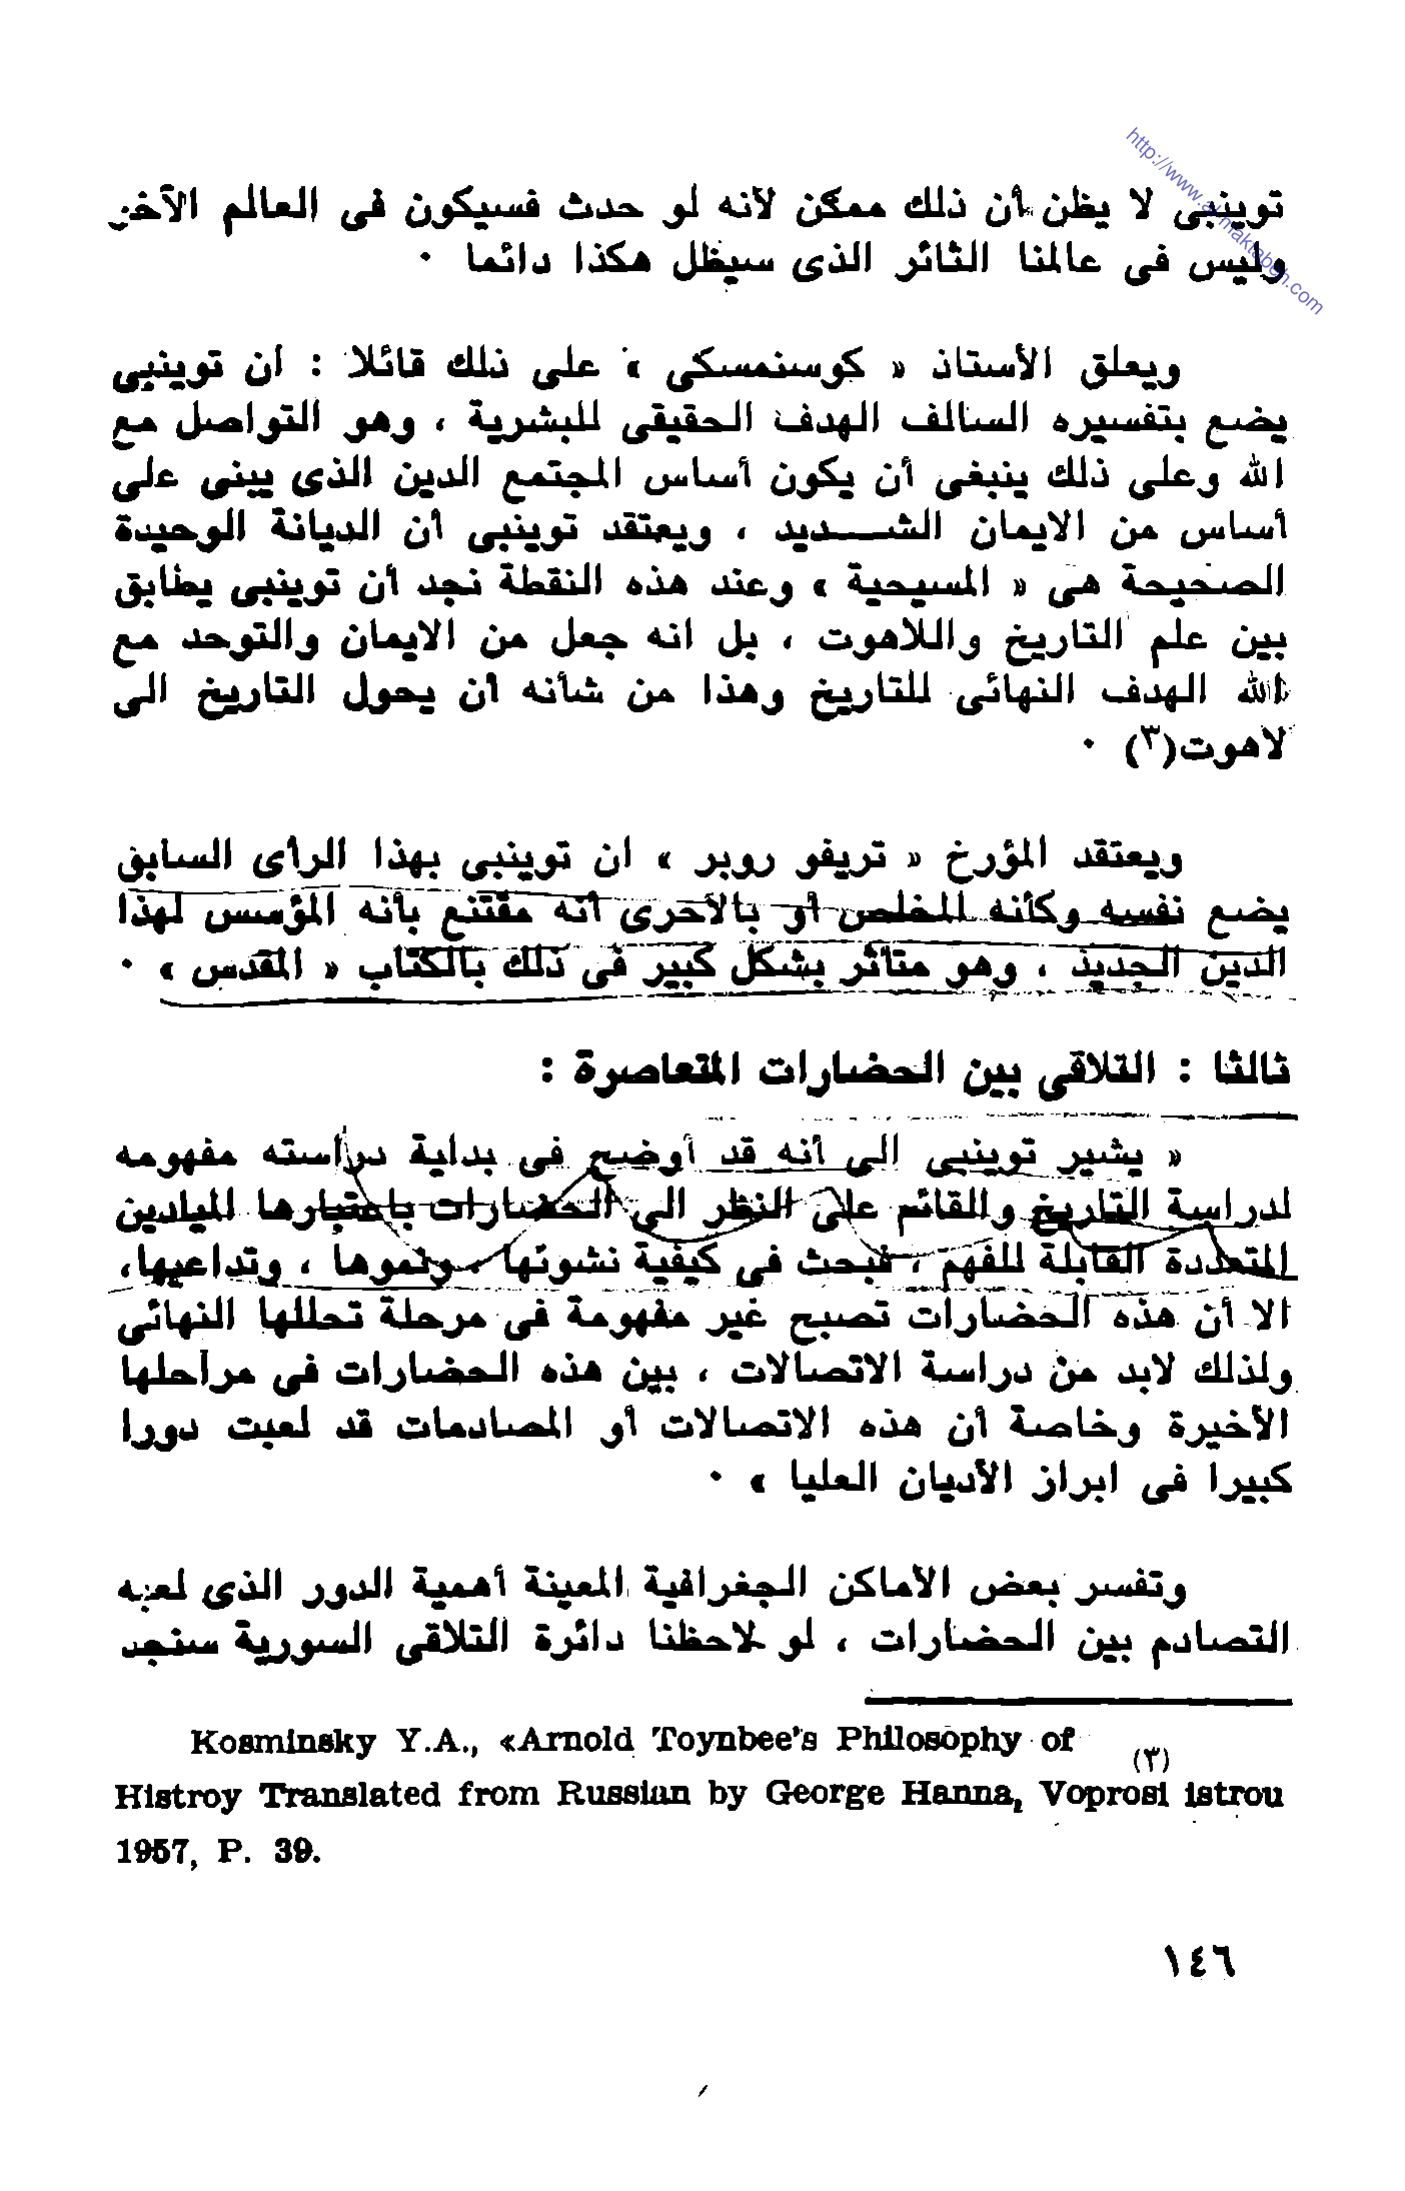 http://www.al-maktabeh.com
توينبى لا يظن أن ذلك ممكن لأنه لو حدث فسيكون فى العالم الآخر
وليس فى عالمنا الثائر الذى سيظل هكذا دائما ٠
ويعلق الأستاذ « كوسنمسكى » على ذلك قائلا : أن توينبى
يضع بتفسيره السالف الهدف الحقيقى للبشرية ، وهو التواصل مع
الله وعلى ذلك ينبغى أن يكون أساس المجتمع الدين الذى يبنى على
أساس من الايمان الشــديد ، ويعتقد توينبى أن الديانة الوحيدة
الصحيحة هى « المسيحية » وعند هذه النقطة نجد أن توينبى يطابق
بين علم التاريخ واللاهوت ، بل انه جعل من الايمان والتوحد مع
الله الهدف النهائى للتاريخ وهذا من شأنه أن يحول التاريخ الى
لاهوت(٣) ٠
ويعتقد المؤرخ « تريفو روبر » ان توينبى بهذا الرأى السابق
يضع نفسه وكأنه المخلص أو بالأحرى أنه مقتنع بأنه المؤسس لهذا
الدين الجديد ، وهو متأثر بشكل كبير فى ذلك بالكتاب « المقدس » ٠
ثالثا : التلاقى بين الحضارات المتعاصرة :
« يشير توينبى الى أنه قد أوضح فى بداية دراسته مفهومه
لدراسة التاريخ والقائم على النظر الى الحضارات باعتبارها الميادين
المتعددة القابلة للفهم ، فبحث فى كيفية نشوئها ، ونموها ، وتداعيها،
الا أن هذه الحضارات تصبح غير مفهومة فى مرحلة تحللها النهائى
ولذلك لابد من دراسة الاتصالات ، بين هذه الحضارات فى مراحلها
الأخيرة وخاصة أن هذه الاتصالات أو المصادمات قد لعبت دورا
كبيرا فى ابراز الأديان العليا » ٠
وتفسر بعض الأماكن الجغرافية المعينة أهمية الدور الذى لعبه
التصادم بين الحضارات ، لو لاحظنا دائرة التلاقى السورية سنجد
Kosminsky Y.A., «Arnold Toynbee's Philosophy of (٣)
Histroy Translated from Russian by George Hanna, Voprosi istrou
1957, P. 39.
١٤٦